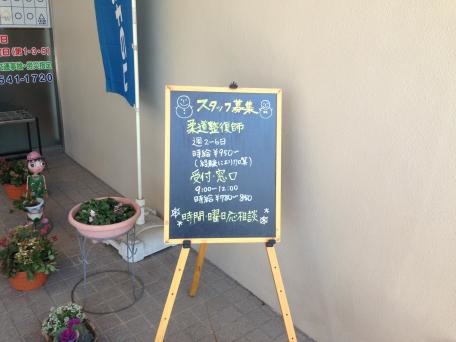 スタッフ募集
柔道整復師
週2~6日
時給¥950~
(経験により加算)
受付・窓口
9:00~12:00
時給¥780~850
時間・曜日応相談
541-1720